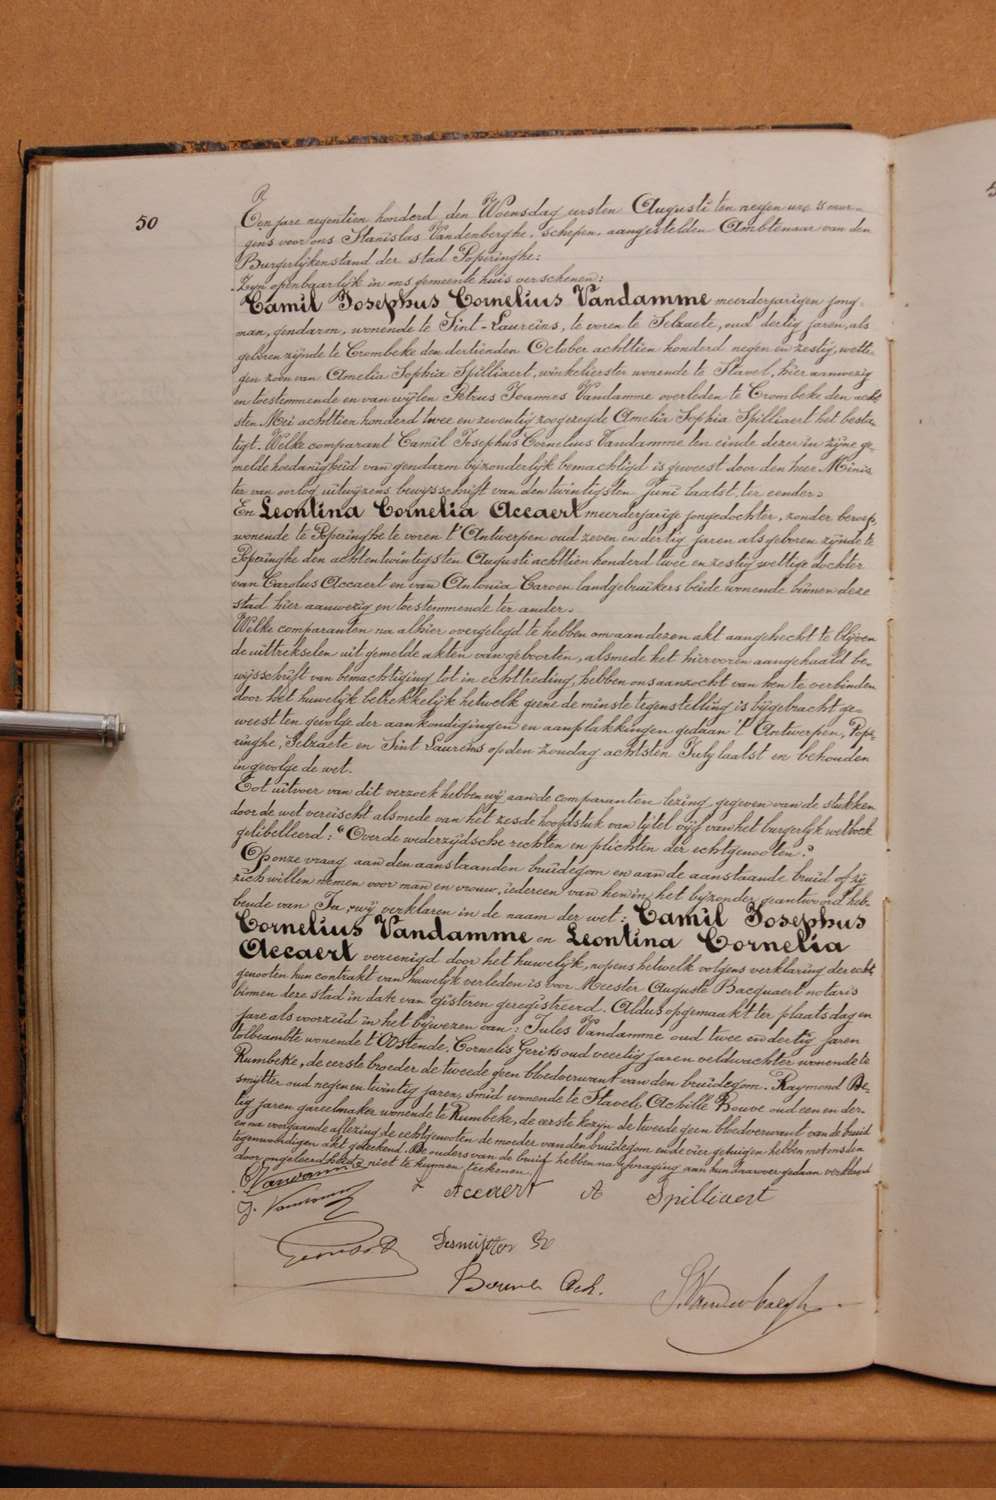 50
Een jare negentien honderd den Woensdag eersten Augusti ten negen ure 's mor-
gens voor ons Stanislas Vandenberghe, schepen, aangestelden Ambtenaar van den
Burgerlijkenstand der stad Poperinghe:
Zijn openbaarlijk in ons gemeente huis verschenen:
Camil Josephus Cornelius Vandamme meerderjarigen jong-
man, gendarm, wonende te Sint-Laureins, te voren te Selzaete, oud dertig jaren, als
geboren zijnde te Crombeke den dertienden October achttien honderd negen en zestig, wetti-
gen zoon van Amelia Sophia Spilliaert, winkelierster wonende te Stavel, hier aanwezig
en toestemmende en van wijlen Petrus Joannes Vandamme overleden te Crombeke den acht
sten Mei achttien honderd twee en zeventig zoo gezegde Amelia Sophia Spilliaert het besta-
tigt. Welke comparant Camil Josephus Cornelius Vandamme ten einde dezer in zijne ge-
melde hoedanigheid van gendarm bijzonderlijk bemachtigd is geweest door den heer Minis
ter van oorlog uitwijzens bewijsschrift van den twintigsten Juni laatst, ter eender.
En Leontina Cornelia Accaert meerderjarige jongedochter, zonder beroep,
wonende te Poperinghe te voren t' Antwerpen oud zeven en dertig jaren als geboren zijnde te
Poperinghe den achtentwintigsten Augusti achttien honderd twee en zestig wettige dochter
van Carolus Accaert en van Antonia Caroen landgebruikers beide wonende binnen deze
stad hier aanwezig en toestemmende ter ander.
Welke comparanten na alhier overgelegd te hebben om aan dezen akt aangehecht te blijven
de uittrekselen uit gemelde akten van geboorten, alsmede het hiervoren aangehaald be-
wijsschrift van bemachtiging tot in echttreding, hebben ons aanzocht van hen te verbinden
door het huwelijk betrekkelijk hetwelk geene de minste tegenstelling is bijgebracht ge-
weest ten gevolge der aankondigingen en aanplakkingen gedaan 't Antwerpen, Pope-
ringhe, Selzaete en Sint Laureins op den zondag achtsten July laatst en behouden
in gevolge de wet.
Tot uitvoer van dit verzoek hebben wij aan de comparanten lezing gegeven van de stukken
door de wet vereischt alsmede van het zesde hoofdstuk van tytel vijf van het burgerlijk wetboek
gelibelleerd: "Over de wederzijdsche rechten en plichten der echtgenooten."
Op onze vraag aan den aanstaanden bruidegom en aan de aanstaande bruid of zij
zich willen nemen voor man en vrouw, iedereen van hen in het bijzonder geantwoord heb-
bende van Ja, wij verklaren in de naam der wet: Camil Josephus
Cornelius Vandamme en Leontina Cornelia
Accaert vereenigd door het huwelijk, nopens hetwelk volgens verklaring der echt
genooten hun contrakt van huwelijk verleden is voor Meester Auguste Bacquaert notaris
binnen deze stad in date van gisteren geregistreerd. Aldus opgemaakt ter plaats dag en
jare als voorzeid in het bijwezen van: Jules Vandamme oud twee en dertig jaren
tolbeambte wonende t' Oostende, Cornelis Gerits oud veertig jaren veldwachter wonende te
Rumbeke, de eerste broeder de tweede geen bloedverwant van den bruidegom. Raymond De-
smijtter oud negen en twintig jaren, smid wonende te Stavele, Achille Bouve oud een en der-
tig jaren gareelmaker wonende te Rumbeke, de eerste kozijn de tweede geen bloedverwant van de bruid
en na voorgaande aflezing de echtgenooten de moeder van den bruidegom en de vier getuigen hebben met ons den
tegenwoordigen akt geteekend. De ouders van de bruid hebben na afvraging aan hun daarover gedaan verklaard
door ongeleerdheid niet te kunnen teekenen.
C Vandamme
L Accaert A Spilliaert
J. Vandamme
Desmijtter R
Bouve Ach.
S. Vandenberghe